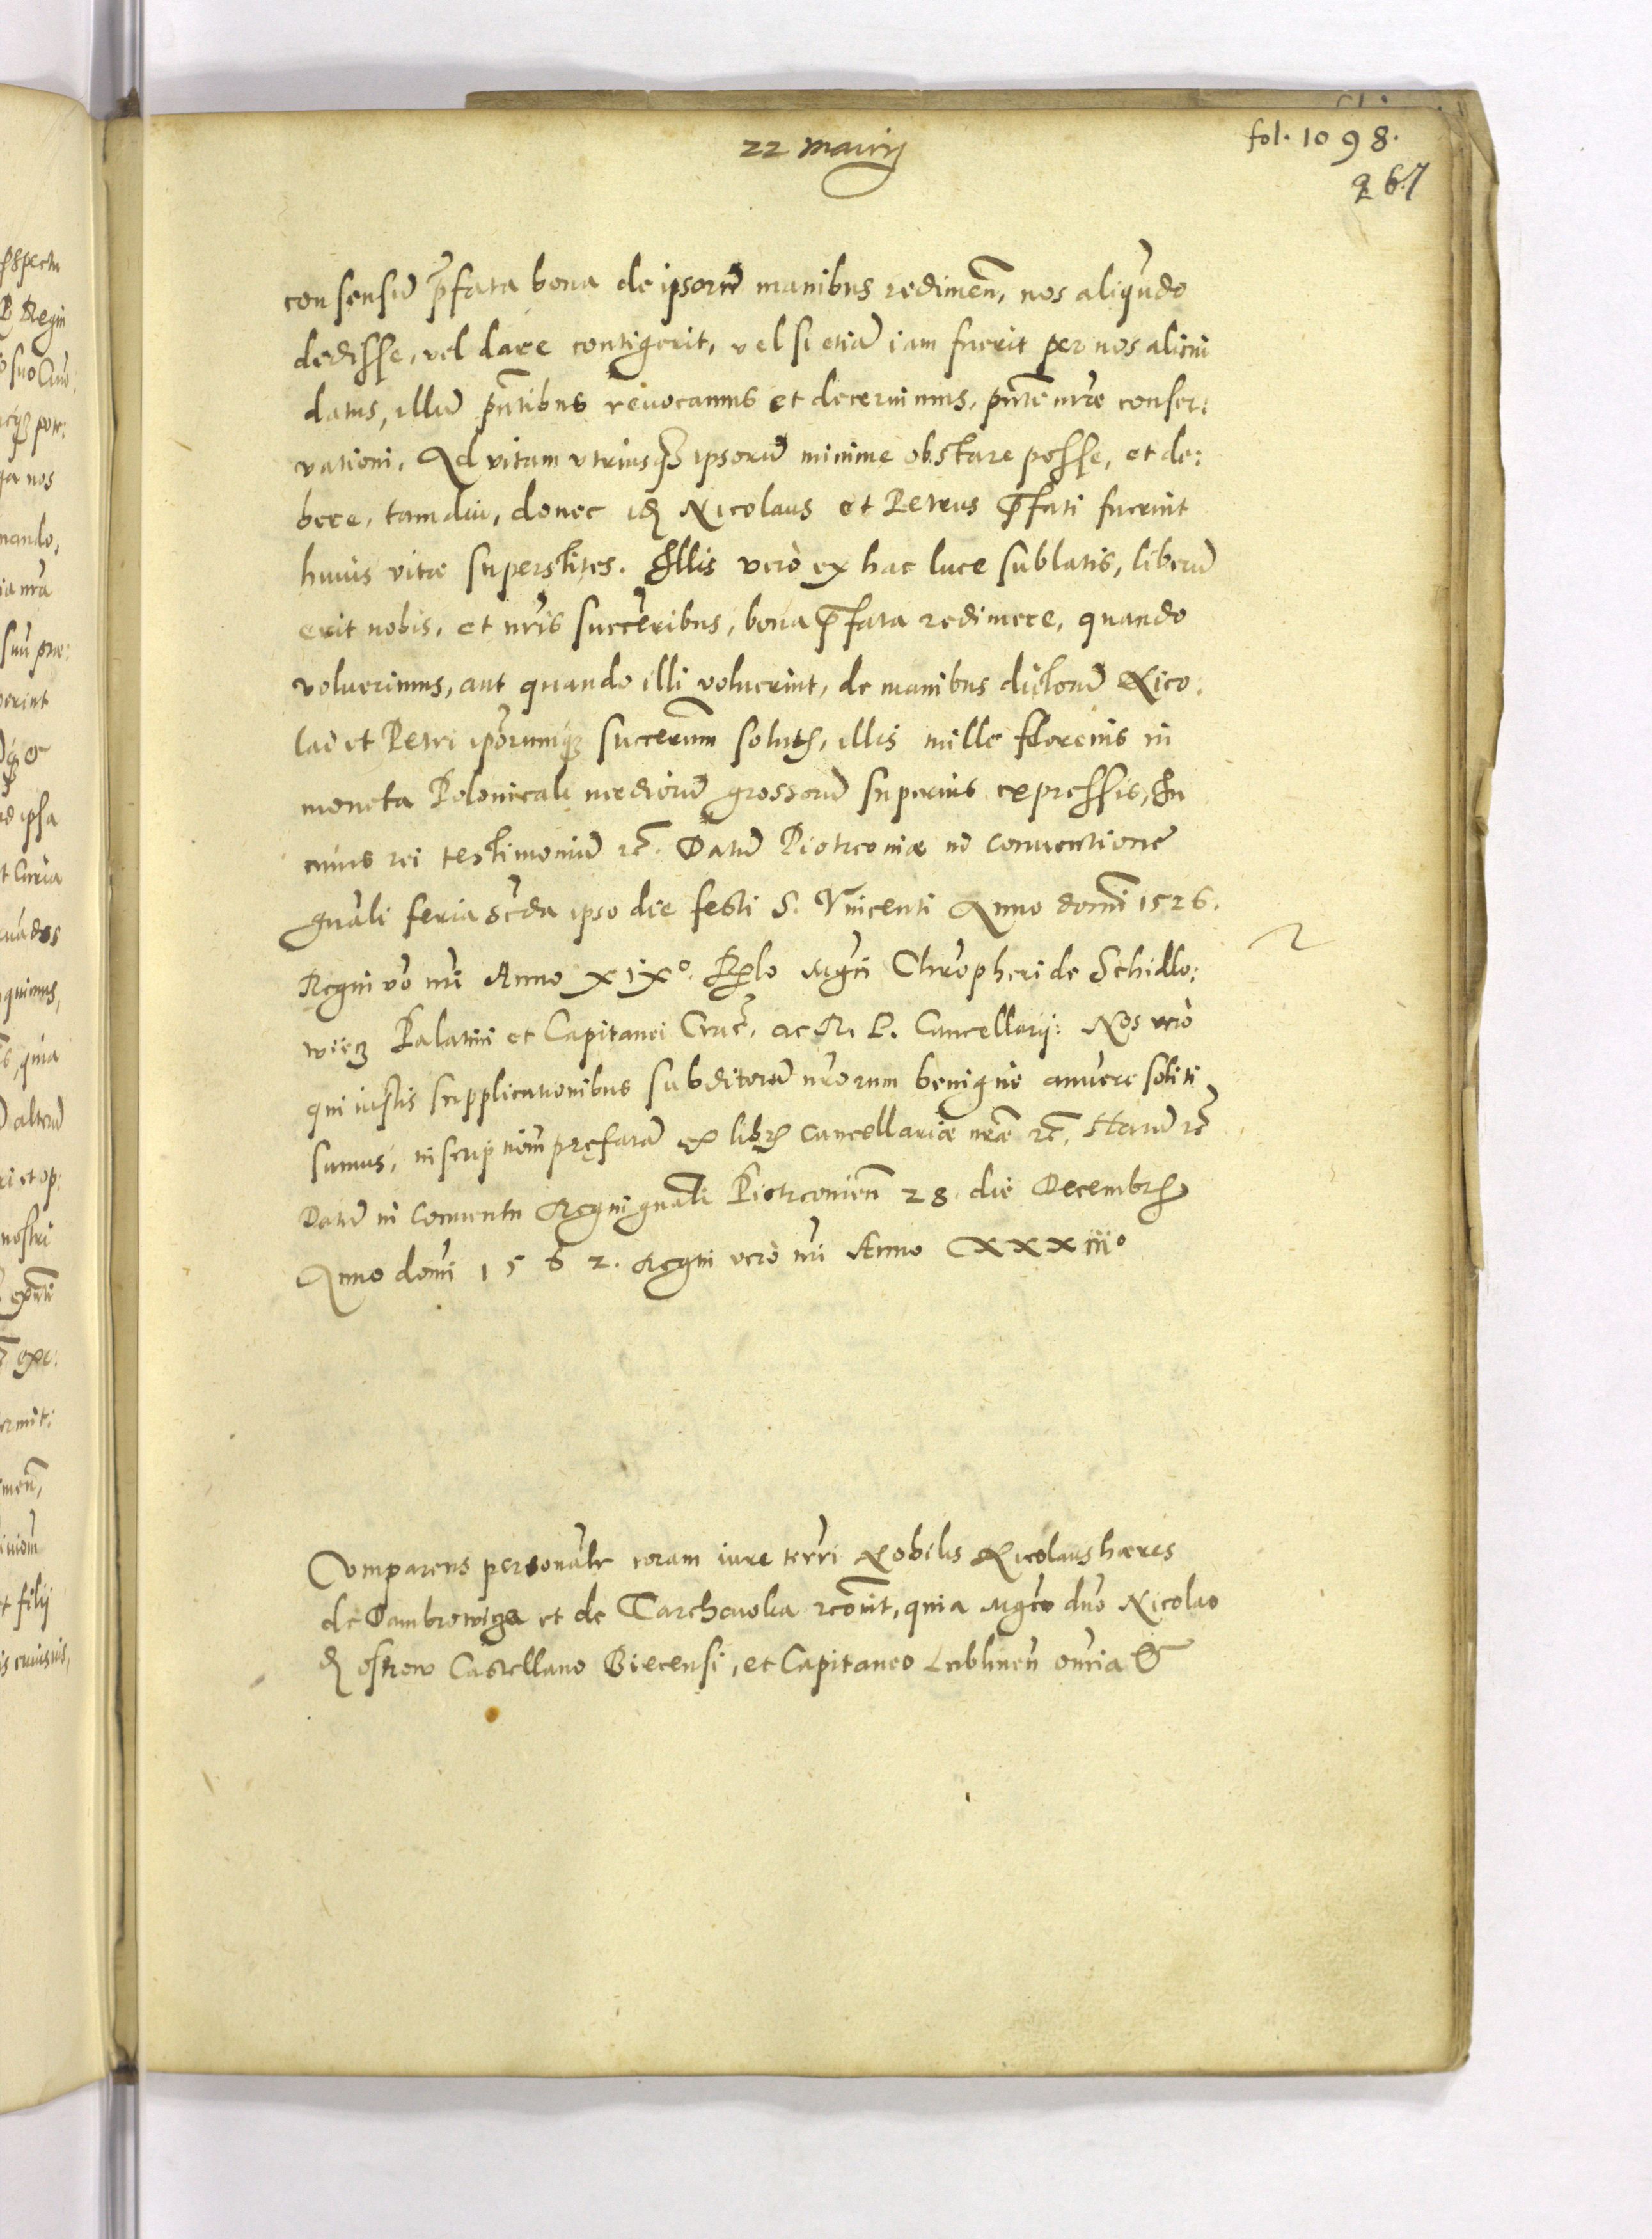 22 maurij
fol. 1098.
267
consensũ p̃fata bona de ipsorũ manibus redimeñ, nos aliqũdo
dedisse, vel dare contigerit, vel si etiã iam fuerit per nos alicui
datus, illũ pñtibus reuocamus et decernimus, pñtẽ nr̃e conser:
vationi, Ad vitam vtriusqz ipsorũ minime obstare posse, et de:
bere, tamdiu, donec idẽ Nicolaus et Petrus p̃fati fuerint
huius vitæ superstites. Illis verò ex hac luce sublatis, liberũ
erit nobis, et nr̃is succr̃ibus, bona p̃fata redimere, quando
voluerimus, aut quando illi voluerint, de manibus dictorũ Nico:
lai et Petri ip̃orumqz succr̃um solutis, illis mille florenis in
moneta Polonicali mediorũ grossorũ superius expressis, In
cuius rei testimoniũ rc̃. Datũ Piotrconiæ in conuentione
gnãli feria scd̃a ipso die festi S. Vincenti Anno domĩ 1526.
Regni vo nr̃i Anno xixº. Rp̃lo Mgc̃i Chrõpheri de Schidlo:
wiecz Palatini et Capitanei Crac̃. ac R. P. Cancellarij: Nos verò
qui iustis supplicationibus subditorũ nr̃orum benignè anuere soliti
sumus, inscriptiom̃ pręfatã ex libris cancellariæ nr̃æ rc̃. Harũ rc̃
Datũ in Conuentu Regni gnãli Piotrconieñ 28. die Decembris
Anno domĩ 1562. Regni verò nr̃i Anno xxxiiiº
Comparens personãlr coram iure terr̃i Nobilis Nicolaus hæres
de Dambrowiga et de Tarchowka rec̃ouit, quia Mgc̃o dño Nicolao
de ostrow Castellano Biecensi, et Capitaneo Lublineñ om̃ia &